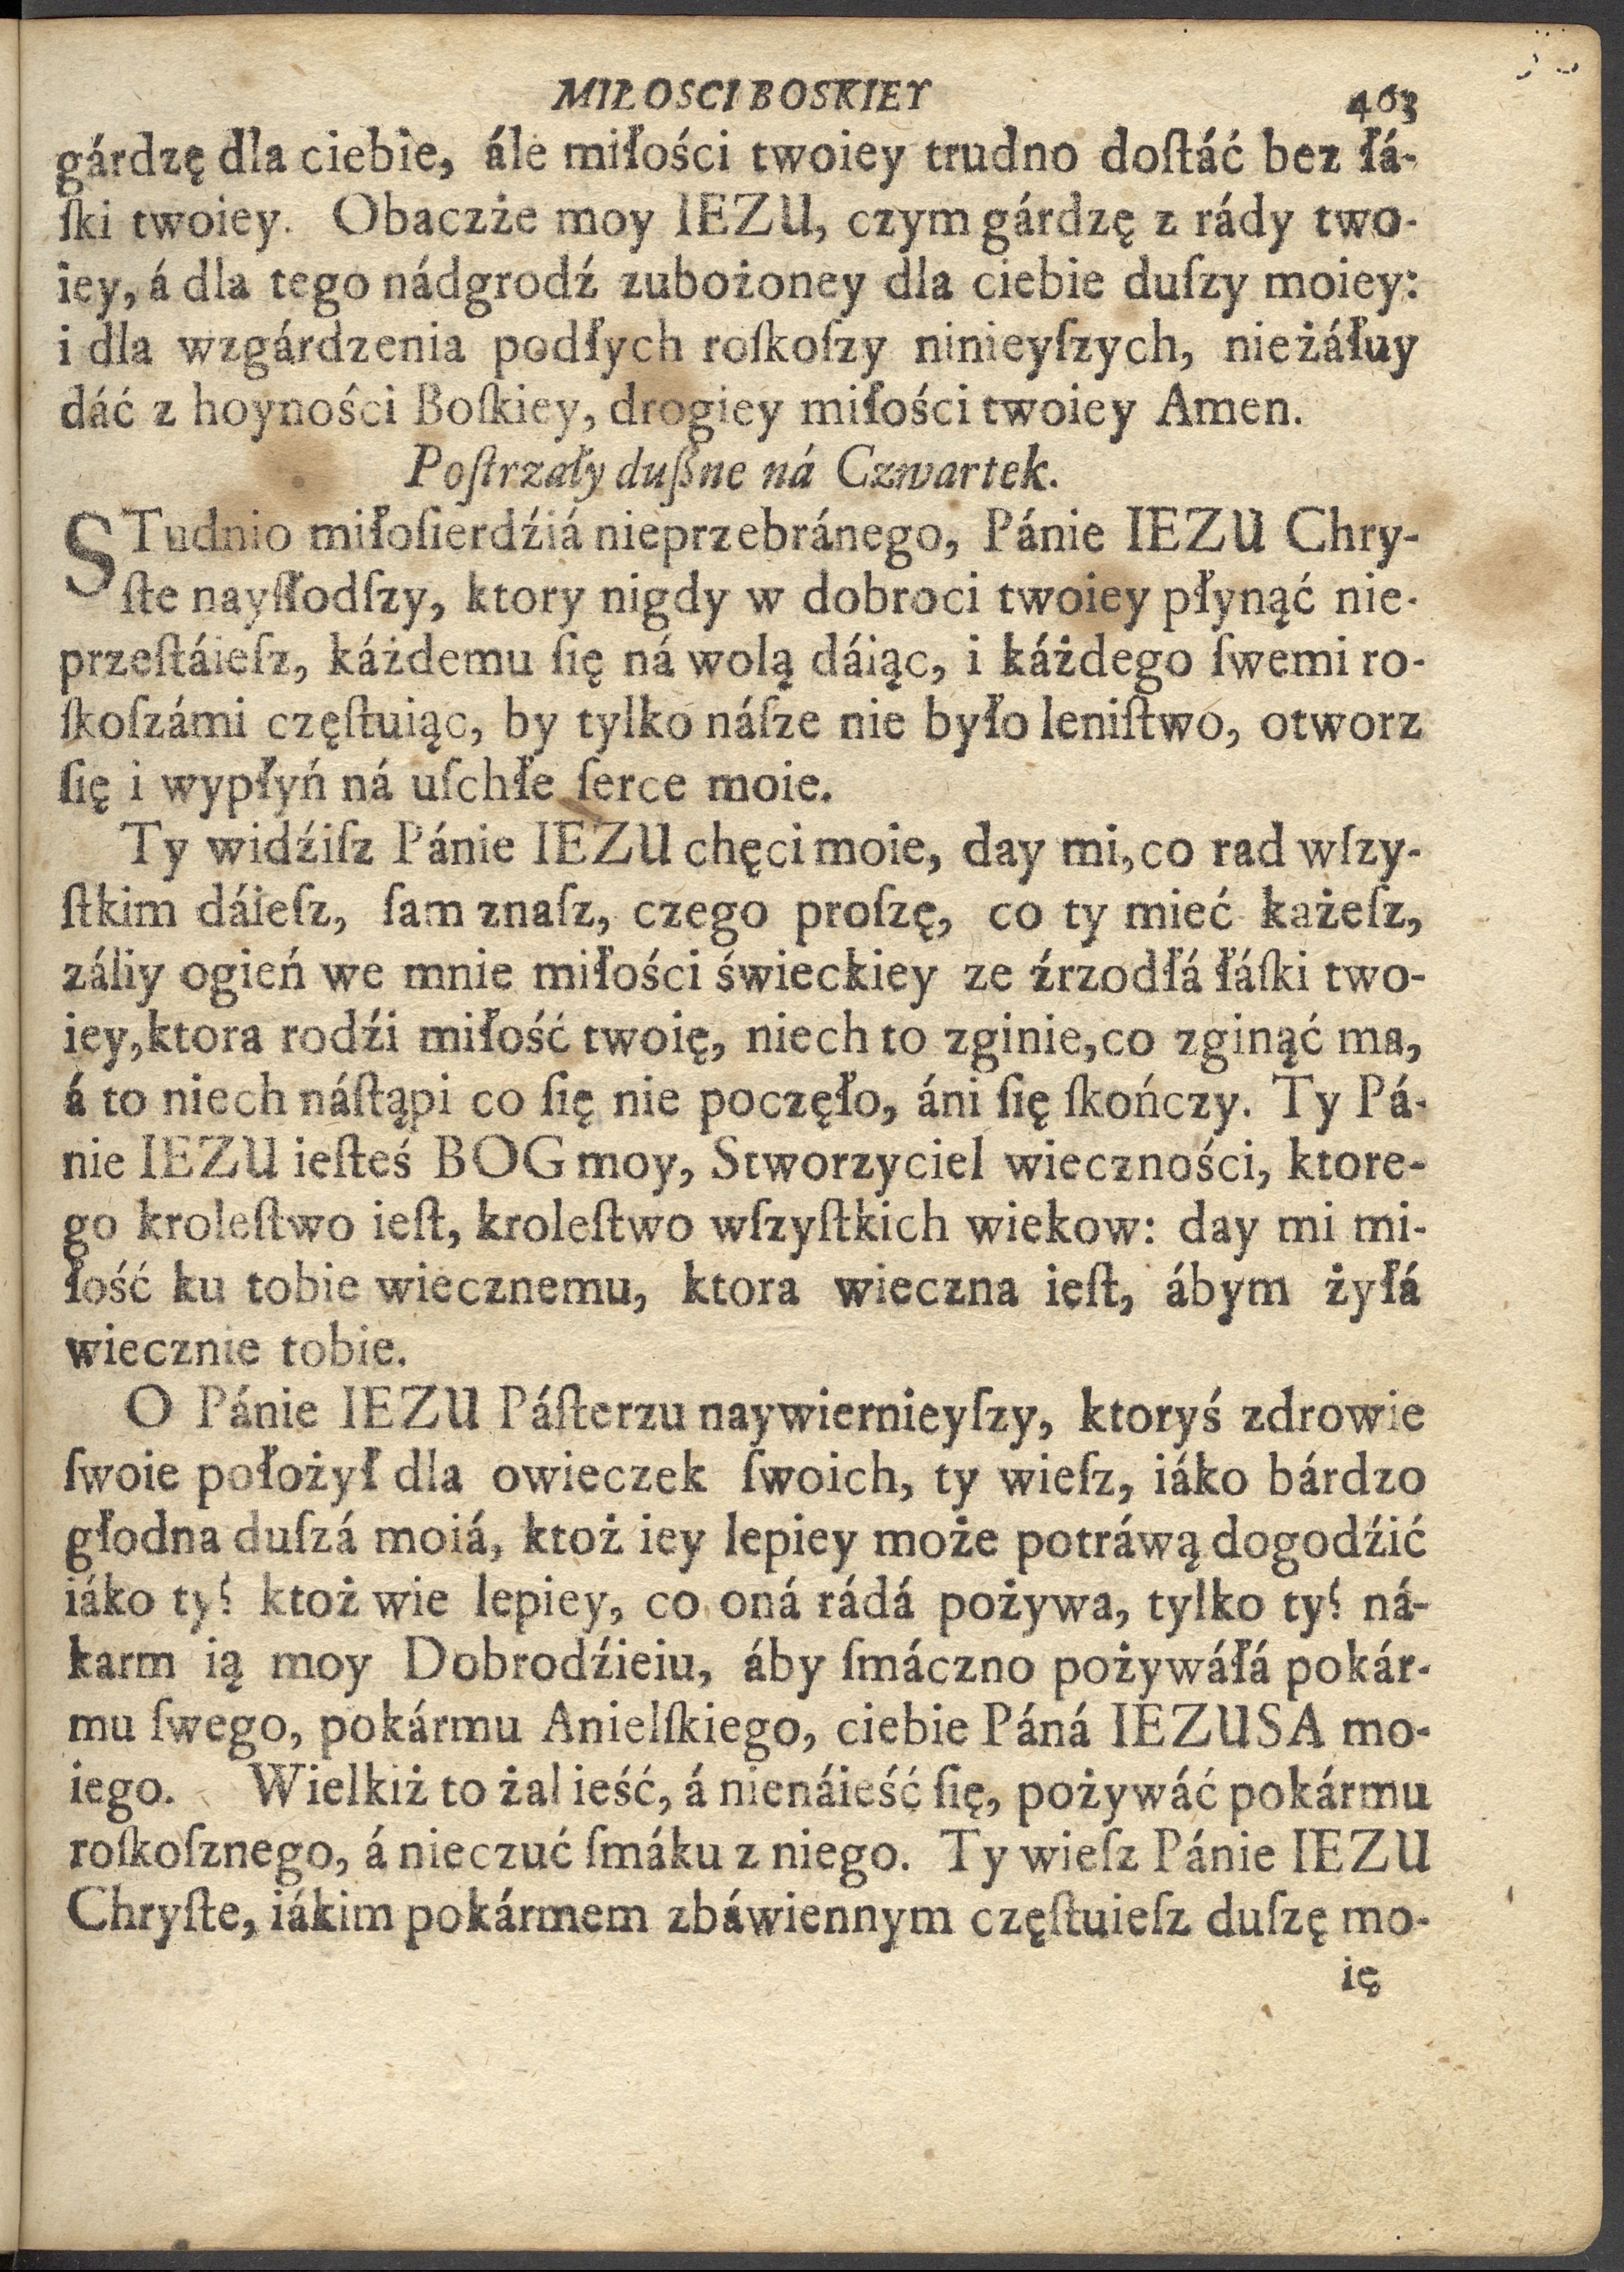 MIŁOSCI BOSKIEY 463
gárdzę dla ciebie, ále miłości twoiey trudno doſtáć bez łá-
ſki twoiey. Obaczże moy IEZU, czym gárdzę z rády two-
iey, á dla tego nádgrodź zubożoney dla ciebie duſzy moiey:
i dla wzgárdzenia podłych roſkoſzy ninieyſzych, nieżáłuy
dáć z hoyności Boſkiey, drogiey miłości twoiey Amen.
Poſtrzały dußne ná Czwartek.
STudnio miłoſierdźiá nieprzebránego, Pánie IEZU Chry-
ſte nayſłodſzy, ktory nigdy w dobroci twoiey płynąć nie-
przeſtáieſz, káżdemu ſię ná wolą dáiąc, i káżdego ſwemi ro-
ſkoſzámi częſtuiąc, by tylko náſze nie było leniſtwo, otworz
ſię i wypłyń ná uſchłe ſerce moie.
Ty widźiſz Pánie IEZU chęci moie, day mi, co rad wſzy-
ſtkim dáieſz, ſam znaſz, czego proſzę, co ty mieć każeſz,
záliy ogień we mnie miłości świeckiey ze źrzodłá łáſki two-
iey, ktora rodźi miłość twoię, niech to zginie, co zginąć ma,
á to niech náſtąpi co ſię nie poczęło, áni ſię ſkończy. Ty Pá-
nie IEZU ieſteś BOG moy, Stworzyciel wieczności, ktore-
go kroleſtwo ieſt, kroleſtwo wſzyſtkich wiekow: day mi mi-
łość ku tobie wiecznemu, ktora wieczna ieſt, ábym żyłá
wiecznie tobie.
O Pánie IEZU Páſterzu naywiernieyſzy, ktoryś zdrowie
ſwoie położył dla owieczek ſwoich, ty wieſz, iáko bárdzo
głodna duſzá moiá, ktoż iey lepiey może potráwą dogodźić
iáko ty? ktoż wie lepiey, co oná rádá pożywa, tylko ty? ná-
karm ią moy Dobrodźieiu, áby ſmáczno pożywáłá pokár-
mu ſwego, pokármu Anielſkiego, ciebie Páná IEZUSA mo-
iego. Wielkiż to żal ieść, á nienáieść ſię, pożywáć pokármu
roſkoſznego, á nieczuć ſmáku z niego. Ty wieſz Pánie IEZU
Chryſte, iákim pokármem zbáwiennym częſtuieſz duſzę mo-
ię